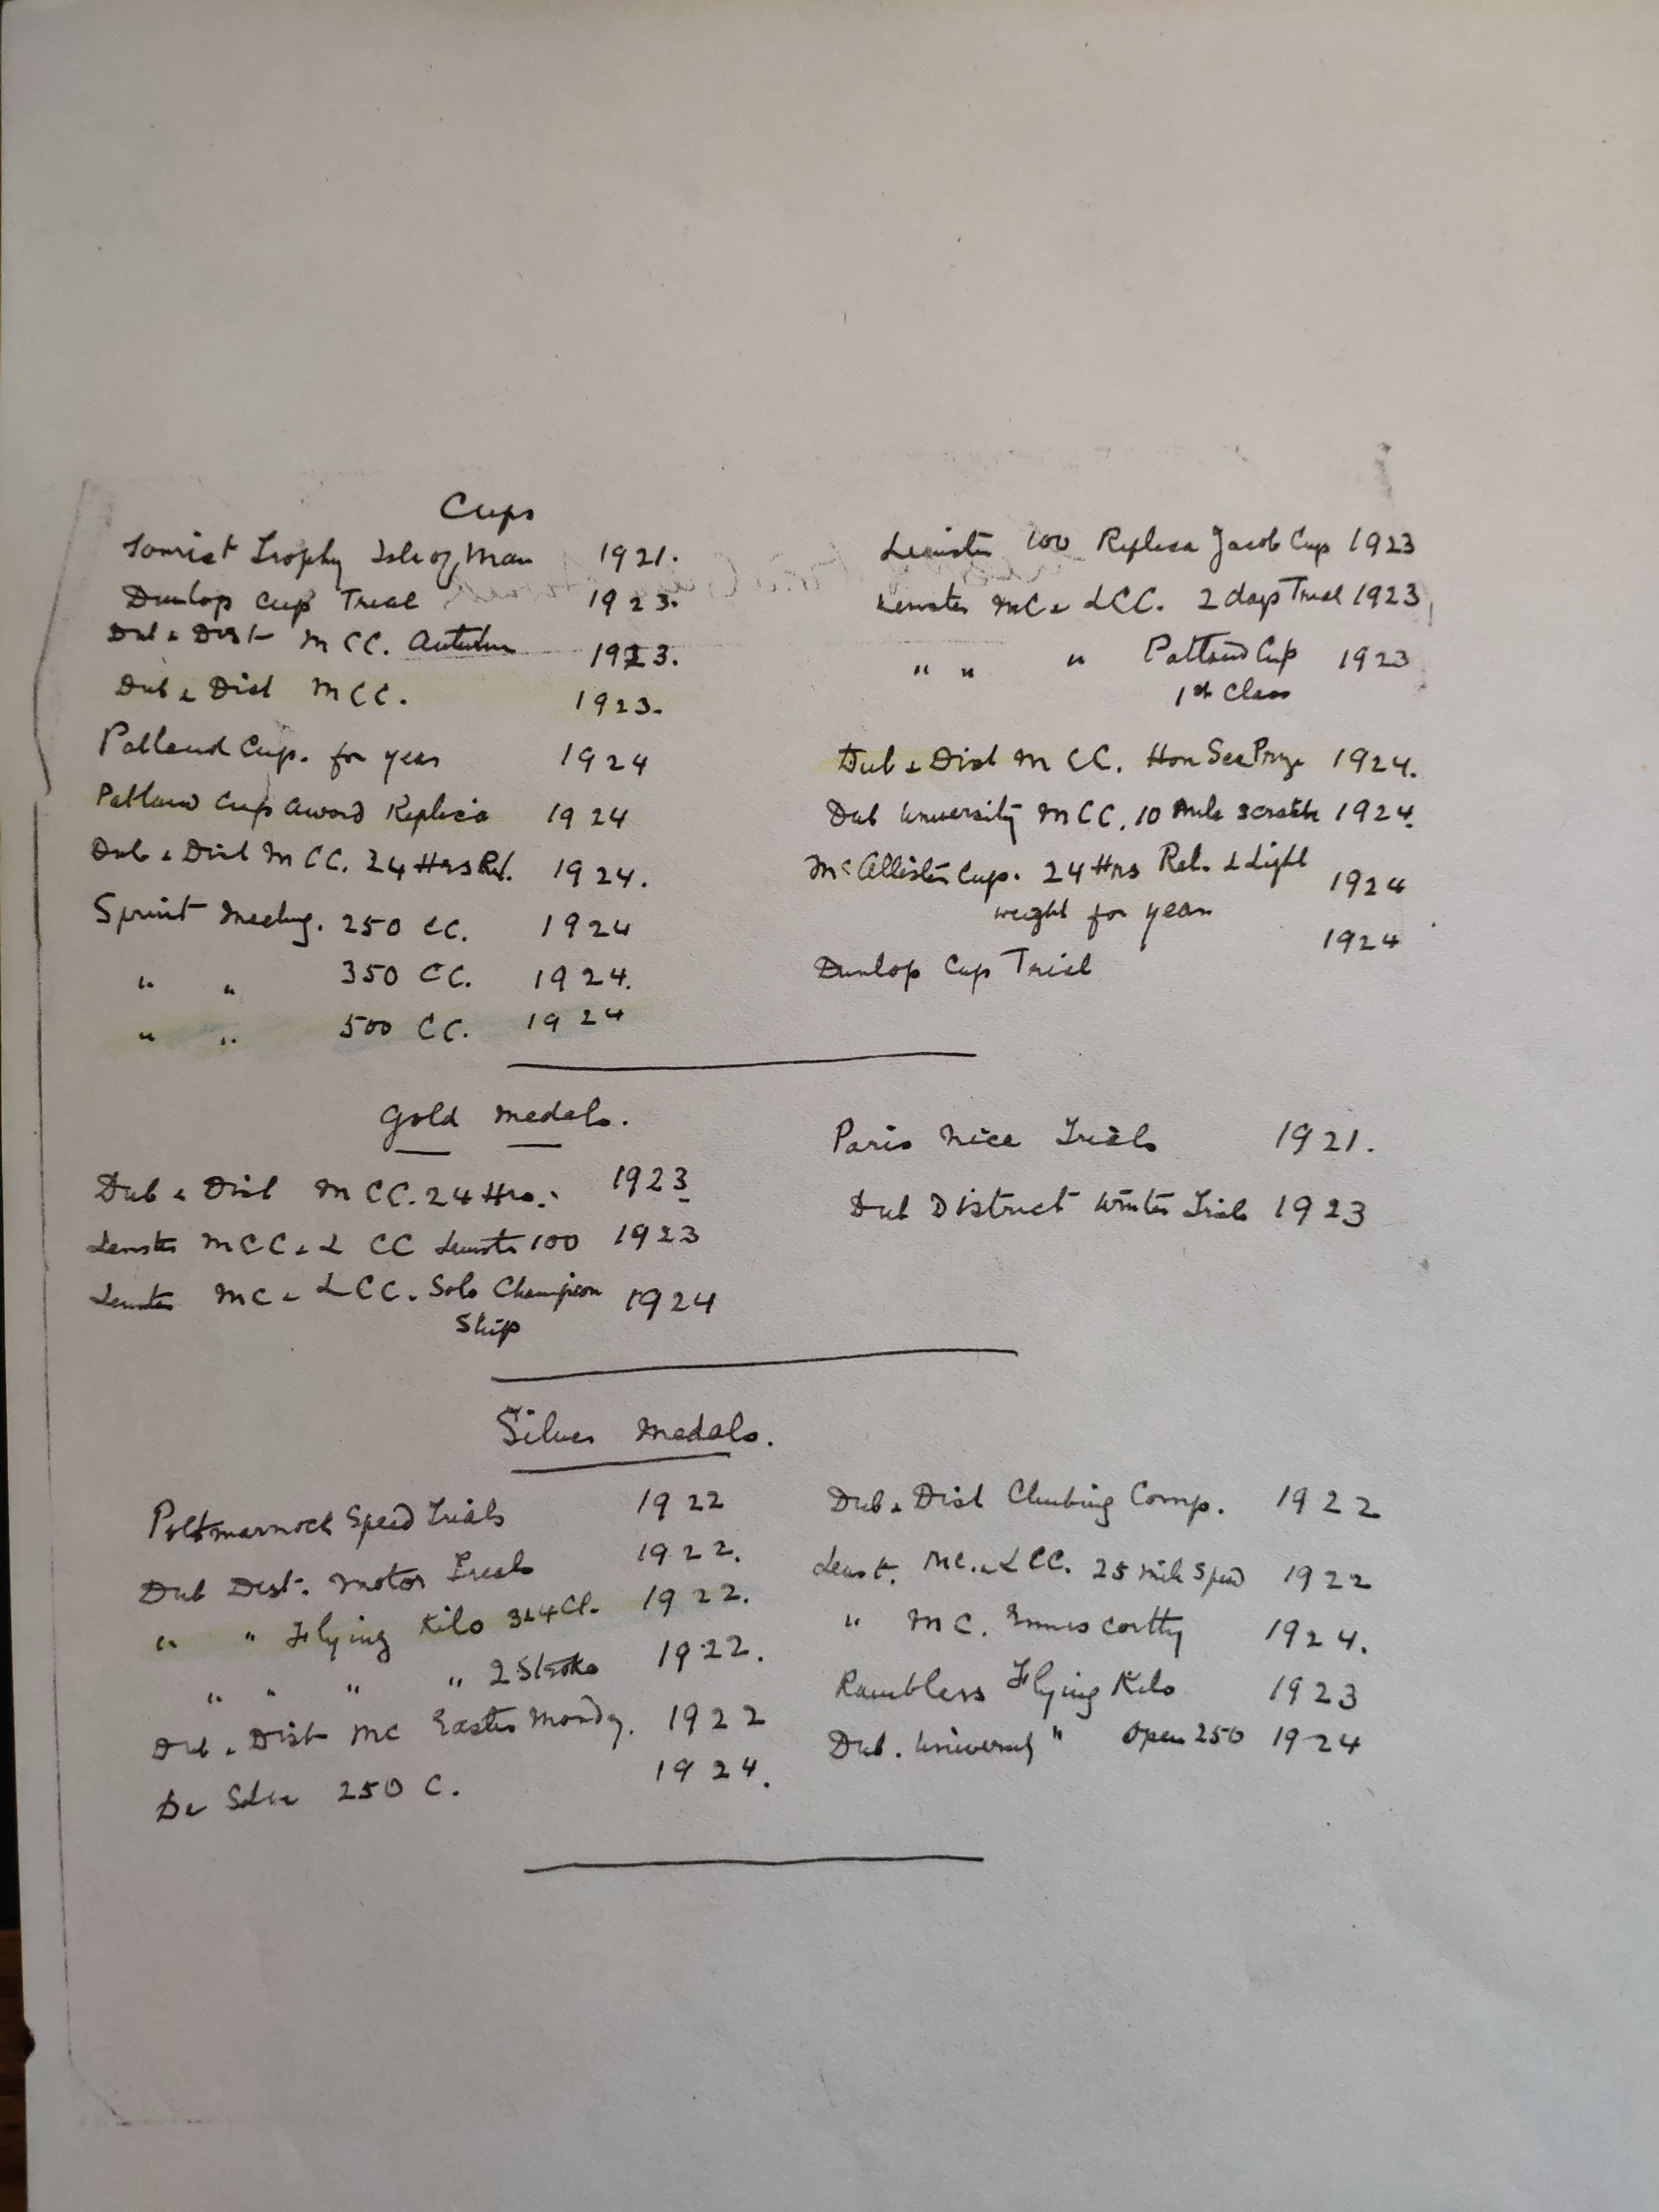 Cups
Tourist Trophy Isle of Man 1921.
Dunlop Cup Trial 1923.
Dub & Dist M CC. Autumn 1923.
Dub & Dist M CC. 1923.
Patland Cup. for year 1924
Patland Cup Award Replica 1924
Dub & Dist M CC. 24 Hrs Rel. 1924.
Sprint Meeting. 250 CC. 1924
" " 350 CC. 1924.
" " 500 CC. 1924
Leinster 100 Replica Jacob Cup 1923
Leinster MC & LCC. 2 days Trial 1923
" " " Patland Cup 1923
1st Class
Dub & Dist M CC. Hon Sec Prize 1924.
Dub University M CC. 10 Mile Scratch 1924.
McAllister Cup. 24 Hrs Rel. & Light 1924
weight for year
Dunlop Cup Trial 1924
Gold Medals.
Dub & Dist M CC. 24 Hrs. 1923
Leinster MCC & L CC Leinster 100 1923
Leinster MC & LCC. Solo Champion 1924
Ship
Paris Nice Trials 1921.
Dub District Winter Trials 1923
Silver Medals.
Portmarnock Speed Trials 1922
Dub Dist. Motor Trials 1922.
" " Flying Kilo 3&4 Cl. 1922.
" " " " 2 Stroke 1922.
Dub. Dist MC Easter Monday. 1922
250 C. 1924.
Dub & Dist Climbing Comp. 1922
Leinst. MC. & LCC. 25 mile Speed 1922
" MC. Enniscorthy 1924.
Ramblers Flying Kilo 1923
Dub. University " Open 250 1924